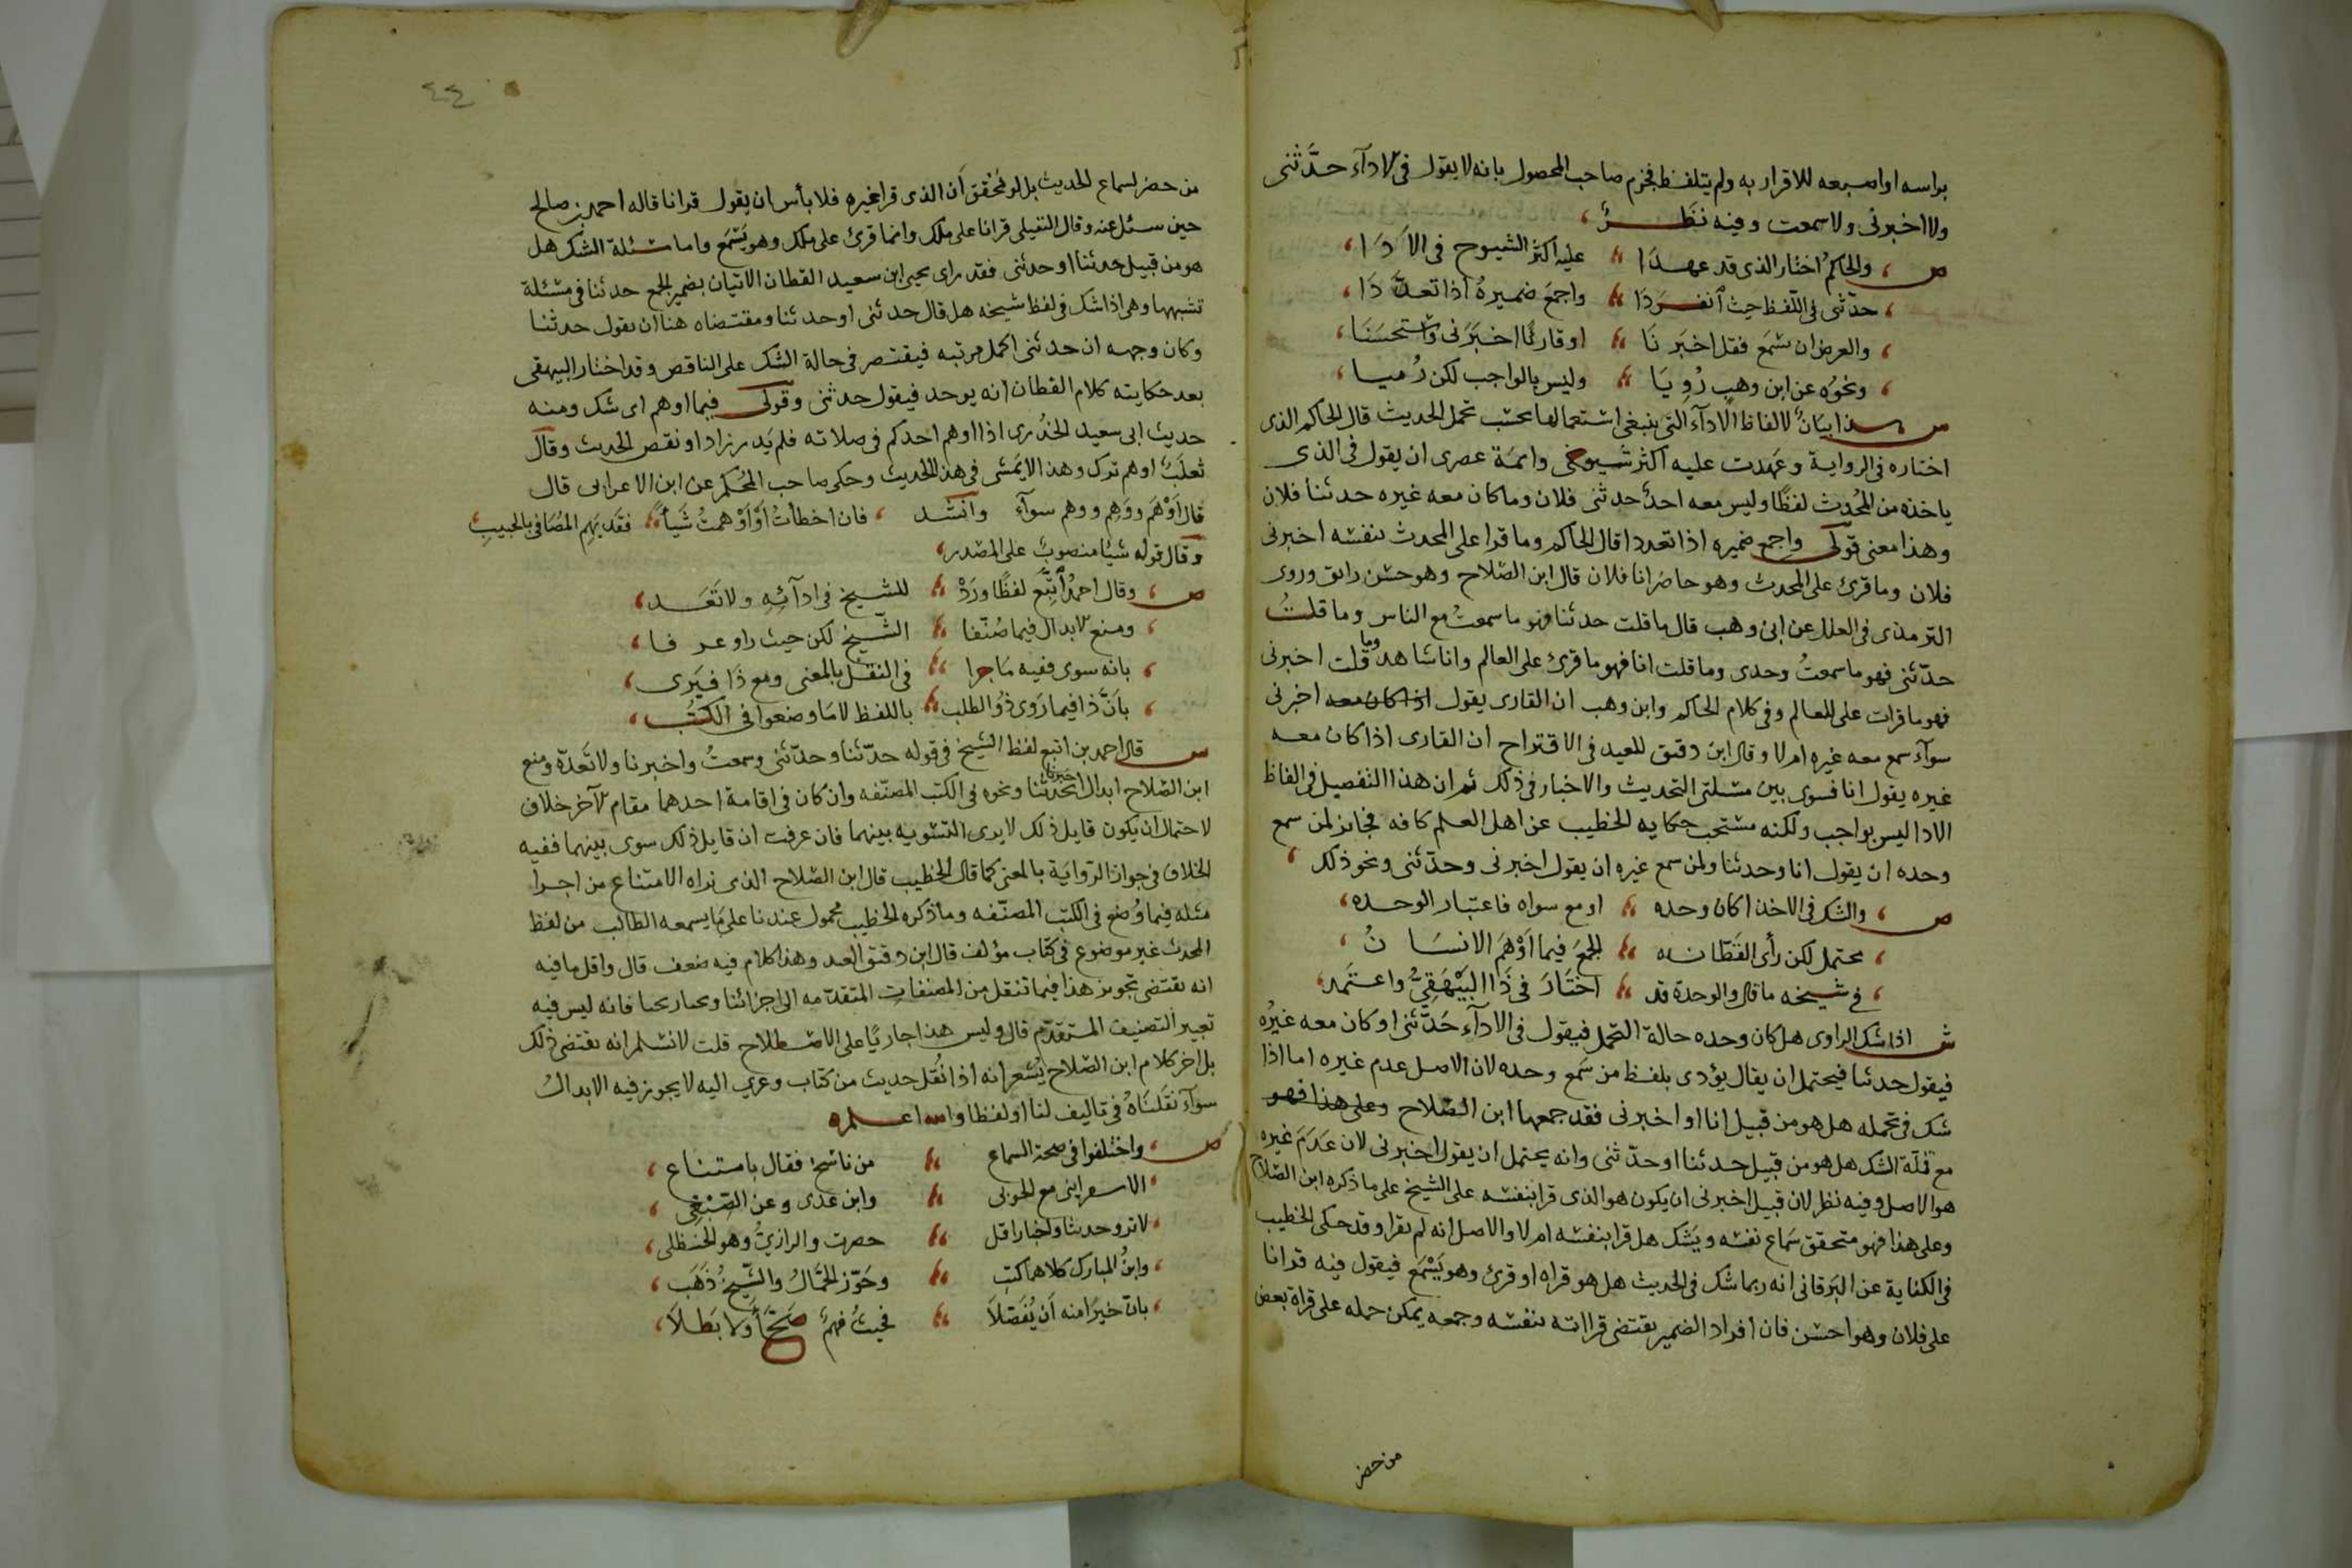 براسه او اصبعه للاقرار به ولم يتلفظ فجزم صاحب المحصول بانه لا يقول فى الادآء حدَّثنى
ولا اخبرنى ولا سمعت وفيه نظر
ص والحاكم اختار الذى قد عهدا عليه اكثر الشيوخ فى الادا
حدّثنى فى اللّفظ حيث انفردا واجمع ضميره اذا تعدّدا
والعرض ان تسمع فقل اخبرنا او قارئًا اخبرنى واستحسنا
ونحوُه عن ابن وهب رُويا وليس بالواجب لكن رُضيا
هذا بيان لالفاظ الادآء التى ينبغى استعمالها بحسب تحمل الحديث قال الحاكم الذى
اختاره فى الرواية وعهدت عليه اكثر شيوخى وائمة عصرى ان يقول فى الذى
ياخذه من المحدث لفظًا وليس معه احدٌ حدثنى فلان وما كان معه غيره حدثنا فلان
وهذا معنى قولى واجمع ضميره اذا تعددا قال الحاكم وما قرا على المحدث بنفسه اخبرنى
فلان وما قرئ على المحدث وهو حاضر انا فلان قال ابن الصّلاح وهو حسن رائق وروى
الترمذى فى العلل عن ابن وهب قال ما قلت حدثنا فهو ما سمعتُ مع الناس وما قلتُ
حدّثنى فهو ما سمعتُ وحدى وما قلت انا فهو ما قرئ على العالم وانا شاهد وما قلت اخبرنى
فهو ما قرات على العالم وفى كلام الحاكم وابن وهب ان القارى يقول اذا كان معه اخبرنى
سوآء سمع معه غيره ام لا وقال ابن دقيق العيد فى الاقتراح ان القارى اذا كان معه
غيره يقول انا فسوى بين مسئلتى التحديث والاخبار فى ذلك ثم ان هذا التفصيل فى الفاظ
الادا ليس بواجب ولكنه مستحب حكايه الخطيب عن اهل العلم كافه فجائز لمن سمع
وحده ان يقول انا وحدثنا ولمن سمع غيره ان يقول اخبرنى وحدّثنى ونحو ذلك
ص والشك فى الاخذ اكان وحده او مع سواه فاعتبار الوحده
محتمل لكن رأى القطّان الجمع فيما اوهم الانسانُ
فى شيخه ما قال والوحدة قد اختار فى ذا البيهقىُّ واعتمد
ش اذا شك الراوى هل كان وحده حالة التحمل فيقول فى الادآء حدّثنى او كان معه غيرُه
فيقول حدثنا فيحتمل ان يقال يؤدى بلفظ من سمع وحده لان الاصل عدم غيره اما اذا
شك فى تحمله هل هو من قبيل انا او اخبرنى فقد جمعها ابن الصّلاح وعلى هذا فهو
مع مسئلة الشك هل هو من قبيل حدثنا او حدّثنى وانه يحتمل ان يقول اخبرنى لان عدم غيره
هو الاصل وفيه نظر لان قبيل اخبرنى ان يكون هو الذى قرا بنفسه على الشيخ على ما ذكره ابن الصّلاح
وعلى هذا فهو متحقق سماع نفسه ويشك هل قرا بنفسه ام لا والاصل انه لم يقرا وقد حكى الخطيب
فى الكفاية عن البرقانى انه ربما شك فى الحديث هل هو قراه او قرئ وهو يسمع فيقول فيه قرانا
على فلان وهو احسن فان افراد الضمير يقتضى قراته بنفسه وجمعه يمكن حمله على قراة بعض
من حضر
٤٤
من حضر لسماع الحديث بل لو تحقق ان الذى قرا غيره فلا بأس ان يقول قرانا قاله احمد بن صالح
حين سئل عنه وقال النفيلى قرانا على ملك وانما قرئ على ملك وهو يسمع واما مسئلة الشك هل
هو من قبيل حدثنا او حدثنى فقد راى يحيى ابن سعيد القطان الاتيان بضمير الجمع حدثنا فى مسئلة
تشبهها وهى اذا شك فى لفظ شيخه هل قال حدثنى او حدثنا ومقتضاه هنا ان يقول حدثنا
وكان وجهه ان حدثنى اكمل مرتبه فيقتصر فى حالة الشك على الناقص وقد اختار البيهقى
بعد حكايته كلام القطان انه يوحد فيقول حدثنى وقولى فيما اوهم اى شك ومنه
حديث ابى سعيد الخدرى اذا اوهم احدكم فى صلاته فلم يدر زاد او نقص الحديث وقال
ثعلب اوهم ترك وهذا لا يمشى فى هذا الحديث وحكى صاحب المحكم عن ابن الاعرابى قال
قال اَوْهَم ووَهِم ووهم سوآء وانشد فان اخطأتُ اَوْ اَوْهمتُ شَيأً فقد يَهِم المُصَافى بالحبيب
وقال قوله شيئا منصوب على المصدر
ص وقال احمدُ اتّبع لفظًا ورَدْ للشيخ فى ادآئه ولا تَعَد
ومنع الابدال فيما صُنّفا الشّيخ لكن حيث راو عرفا
بانه سوى ففيه ما جرا فى النقل بالمعنى ومع ذا فيرى
بأنّ ذا فيما رَوى ذُو الطلب باللفظ لا ما وضعوا فى الكتُب
ش قال احمد بن اتبع لفظ الشيخ فى قوله حدّثنا وحدّثنى وسمعتُ واخبرنا ولا تَعدّه ومنع
ابن الصّلاح ابدال اخبرنا بحدثنا ونحوه فى الكتب المصنّفه وان كان فى اقامة احدهما مقام الآخر خلاف
لاحتمال ان يكون قايل ذلك لا يرى التسويه بينهما فان عرفت ان قايل ذلك سوى بينهما ففيه
الخلاف فى جواز الرّوايَة بالمعنى كما قال الخطيب قال ابن الصّلاح الذى نراه الامتناع من اجرا
مثله فيما وُضع فى الكتب المصنّفه وما ذكره الخطيب محمول عندنا على ما يسمعه الطالب من لفظ
المحدث غير موضوع فى كتاب مؤلف قال ابن دقيق العيد وهذا كلام فيه ضعف قال واقل ما فيه
انه يقتضى تجويز هذا فيما تنقل من المصنفات المتقدّمه الى اجزائنا وتخاريجنا فانه ليس فيه
تعيير التصنيف المتقدّم قال وليس هذا جاريًا على الاصطلاح قلت لا نسلم انه يقتضى ذلك
بل اخر كلام ابن الصّلاح يُشعر انه اذا نُقل حديث من كتاب وعزى اليه لا يجوز فيه الابدالُ
سوآء نقلناهُ فى تاليف لنا او لفظا والله اعلم
ص واختلفوا فى صحة السماع من ناسخ فقال بامتناع
الاسفراينى مع الحربى وابن عدى وعن الصّبْغى
لا ترو حدثنا واخبارا قل حضرت والرازىُّ وهو الحنظلى
وابنُ المبارك كلاهما كتب وجَوّز الحَمّالُ والشّيخُ ذَهَب
بان خيرًا منه اَن يُفَصّلاَ فحيثُ فهمٌ صَحَّ أوْ لا بَطلاَ